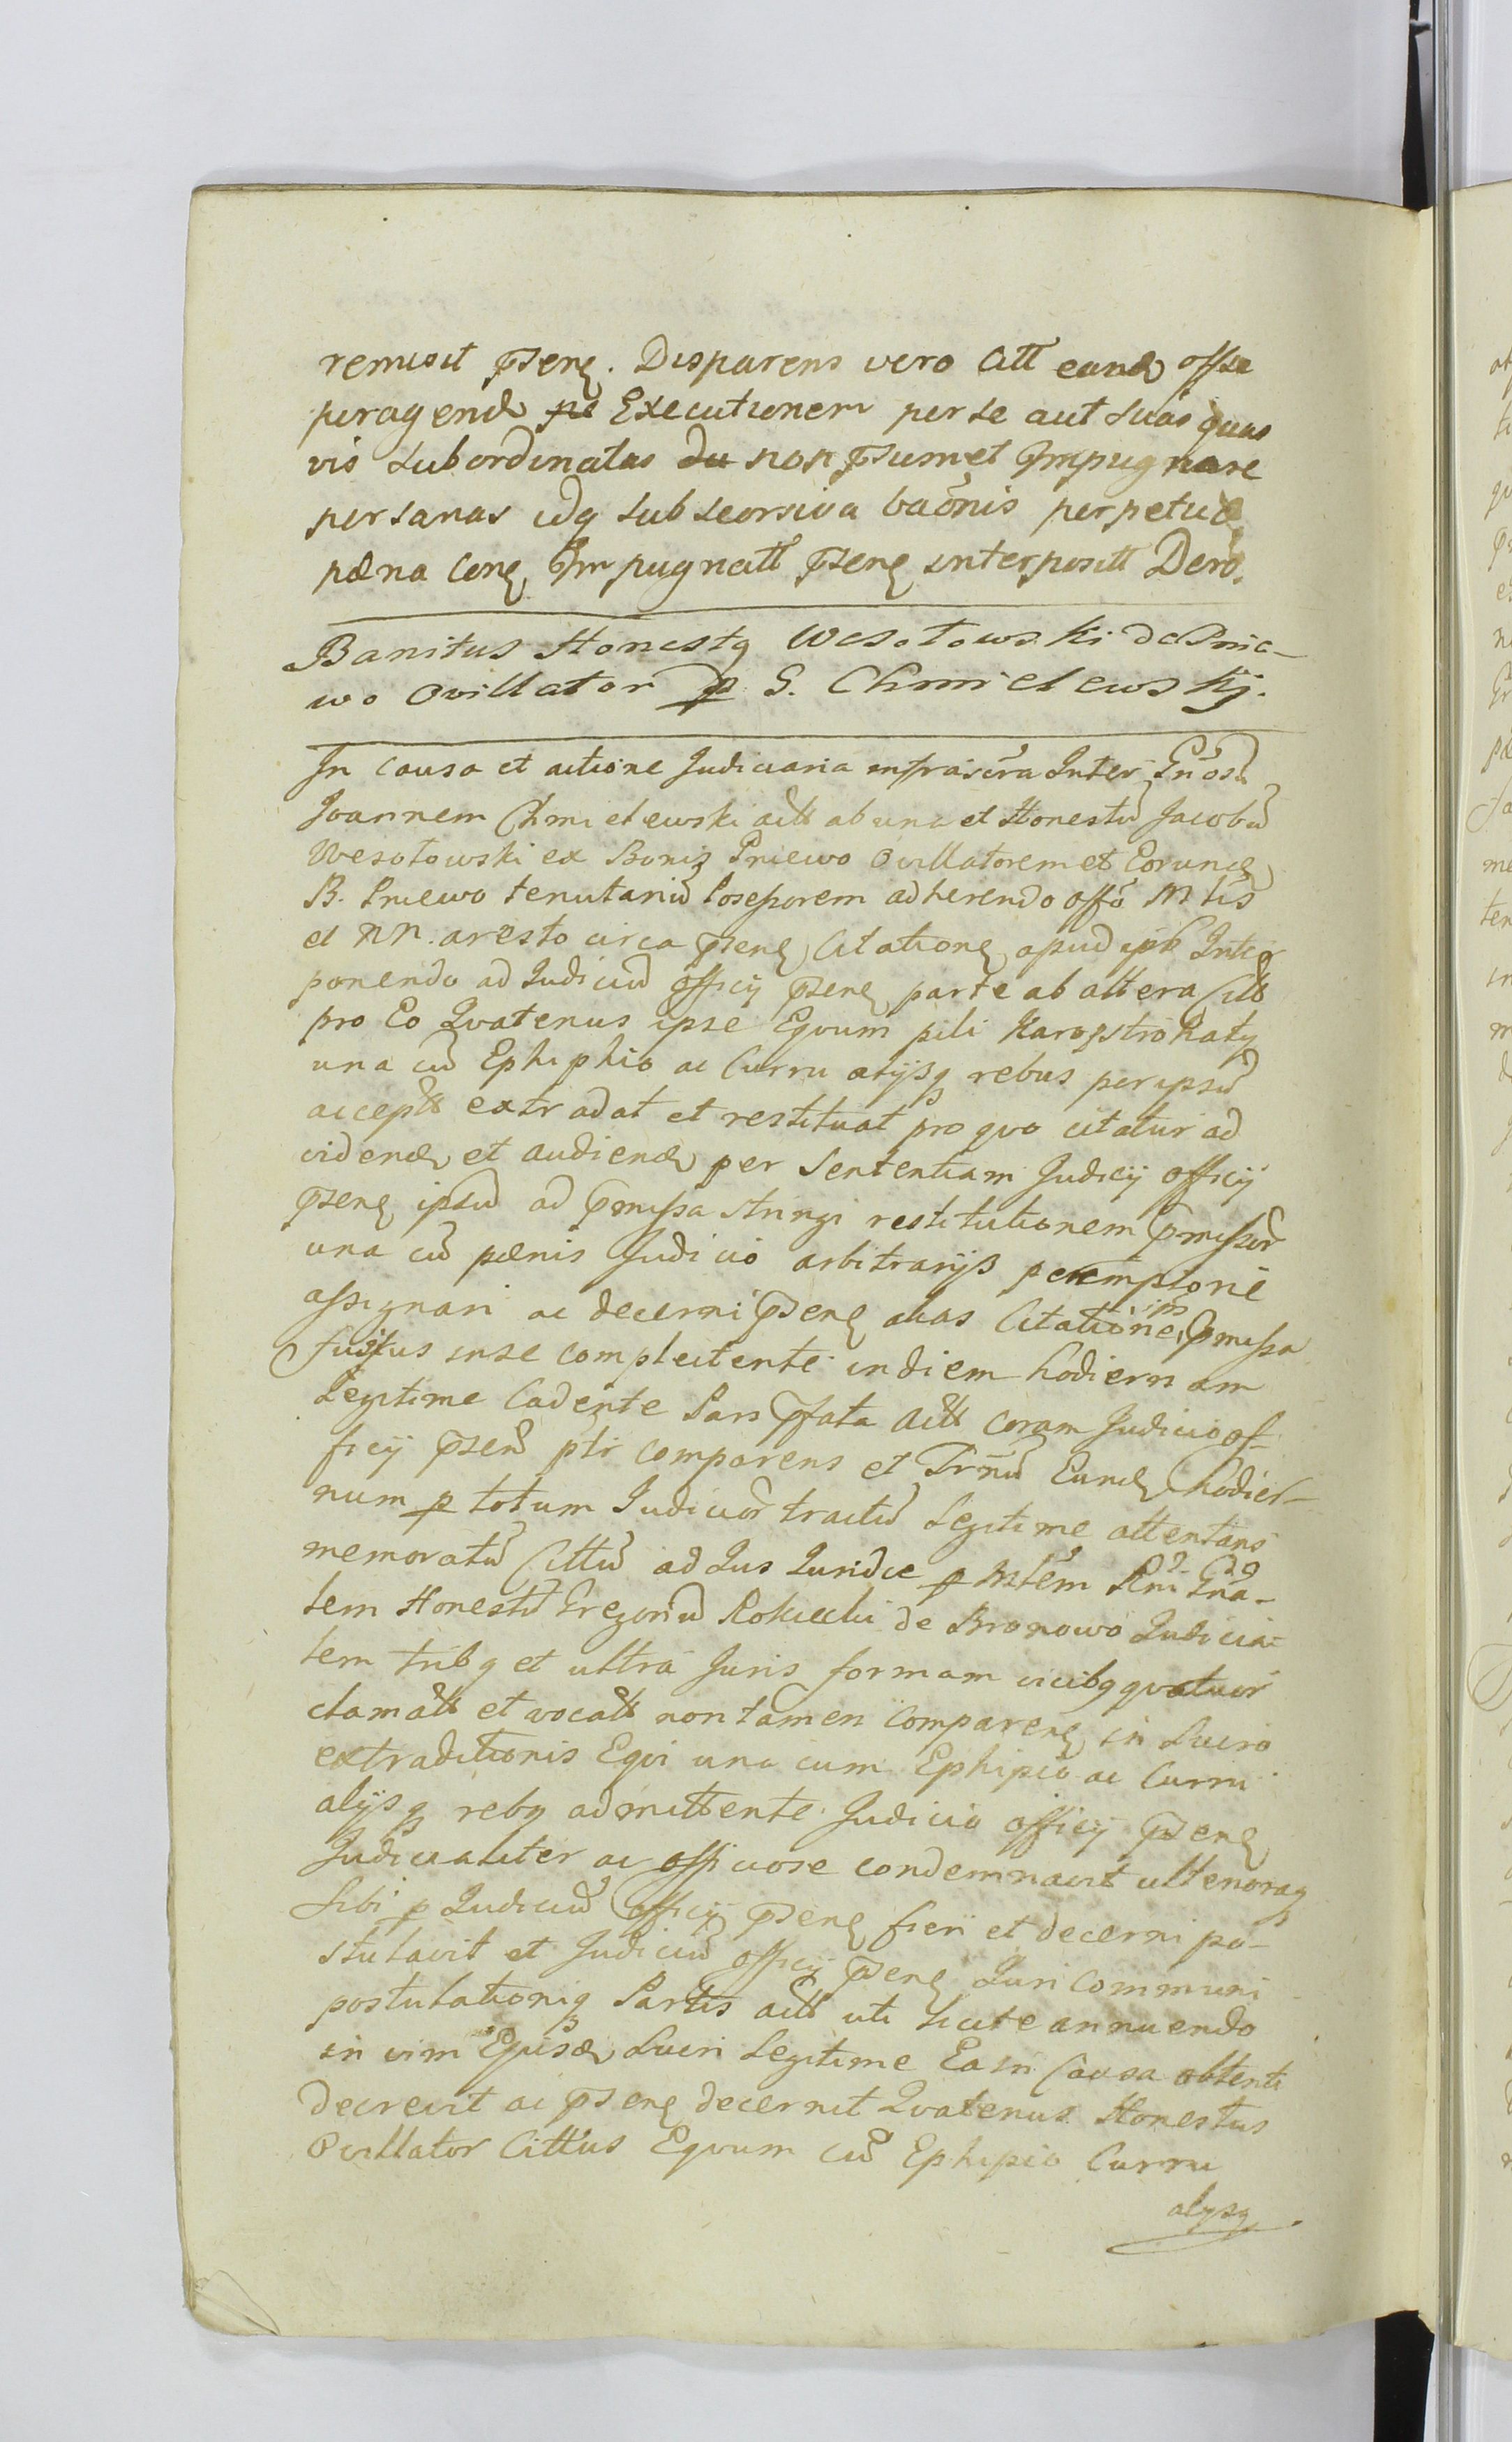 remisit pseng. Disparens vero Citt eand offse
peragend ne Executionem per se aut suas quas
vis subordinatas du non psumet Impugnare
personas idq sub seorsiva baonis perpetuæ
pæna Cong Impugnatt pseng interpositt Dero.
Banitus Honestg Wesołowski de Pnie-
wo Ovillator p G. Chmielewskij.
In causa et actione Judiciaria infrascra Inter Gnosu
Joannem Chmielewski actt ab una et Honestu Jacobu
Wesołowski ex Bonis Pniewo Ovillatorem et Eorund
B. Pniewo tenutariu Possessorem adherendo offo Mtis
et NN. aresto circa pseng Citationg apud ipss Inter
ponendo ad Judiciu officij pseng parte ab altera Citt
pro Eo Qvatenus ipse Eqvum pili Karopstrokaty
una cu Ephiphio ac Curru alijsq rebus per ipsu
accepts extradat et restituat pro quo citatur ad
vidend et audiend per Sententiam Judicij officij
pseng ipsu ad pmissa stringi restitutionem pmissor
una cu pænis Judicio arbitrarijs peremptorie
assignari ac decerni pseng alias Citatione ips pmissa
fusius in se complectente in diem hodiernam
Legitime Cadente Pars pfata actt coram Judicio of-
ficij psen ptr comparens et Trnu Eund hodier-
num p totum Judicior tractu Legitime attentans
memoratu Cittu ad Jus Juridce p Mtem Rni Gna-
lem Honestu Gregoriu Rokicki de Bronowo Judicia-
lem tribq et ultra Juris formam vicibq qvatuor
clamatt et vocatt non tamen Compareng in Lucro
extraditionis Eqvi una cum Ephipio ac Curru
alijsq rebq admittente Judicio officij pseng
Judicialiter ac officiose condemnavit ulterioraq
sibi p Judiciu officij pseng fieri et decerni po-
stulavit et Judiciu officij pseng Juri Communi
postulationiq Partis actt uti licite annuendo
in vim Ejusd Lucri Legitime Ea in Causa obtenti
Decrevit ac pseng decernit Qvatenus Honestus
Ovillator Cittus Eqvum cu Ephipio Curru
alysq